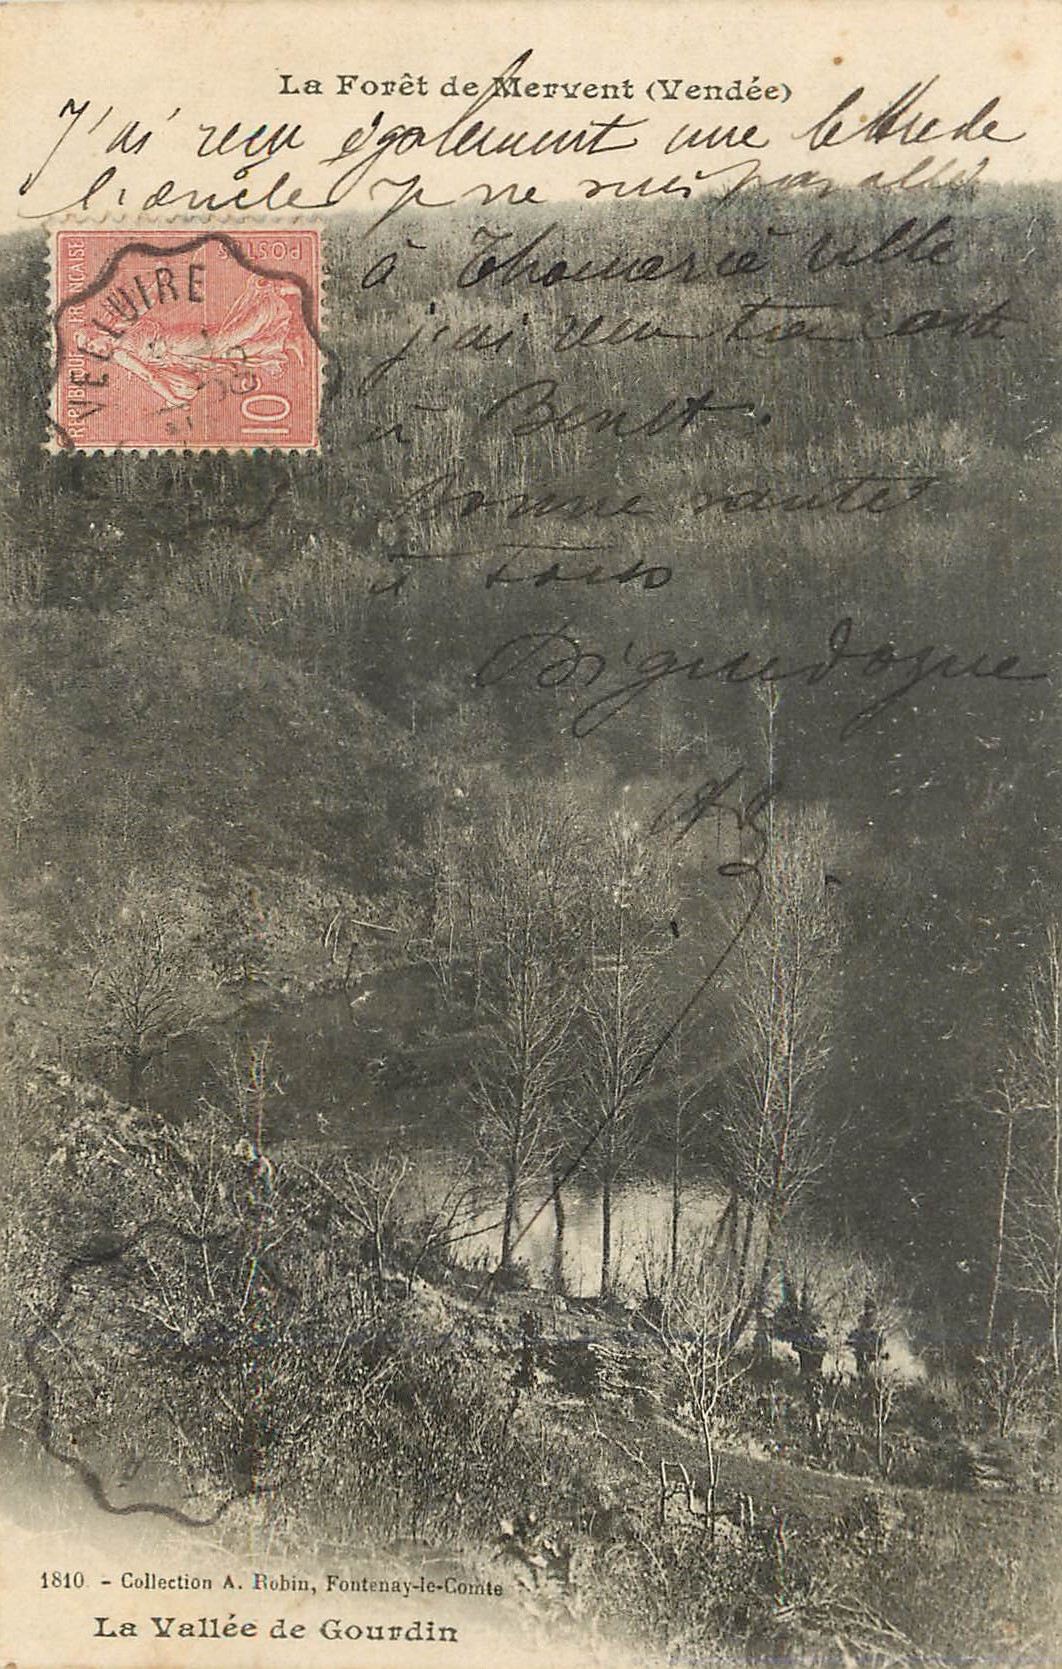 La Forêt de Mervent (Vendée)
J'ai reçu également une lettre de
je ne suis pas allée
à
j'ai reçu ta carte
à Benet.
bonne santé
à Tous
REPUBLIQUE FRANÇAISE
POSTES
10
VELLUIRE
1810. - Collection A. Robin, Fontenay-le-Comte
La Vallée de Gourdin